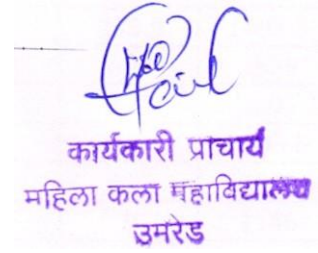 कार्यकारी प्राचार्य
महिला कला महाविद्यालय
उमरेड